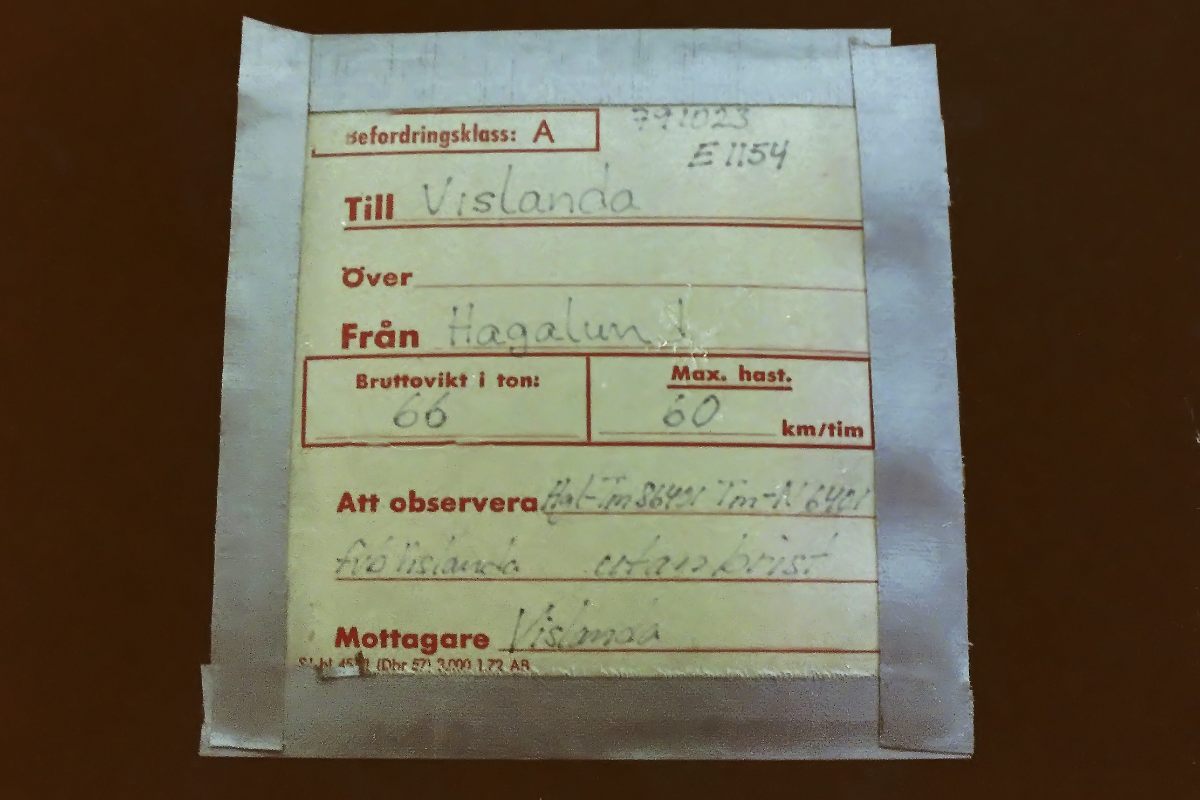 Befordringsklass: A
791023
E 1154
Till Vislanda
Över
Från Hagalund
Bruttovikt i ton:
66
Max. hast.
60 km/tim
Att observera Hgl-Tm 86491 Tm-N 6401
Vislanda utan broist
Mottagare Vislanda
SJ bl (Dbr 57) 3.000 1.72 AB